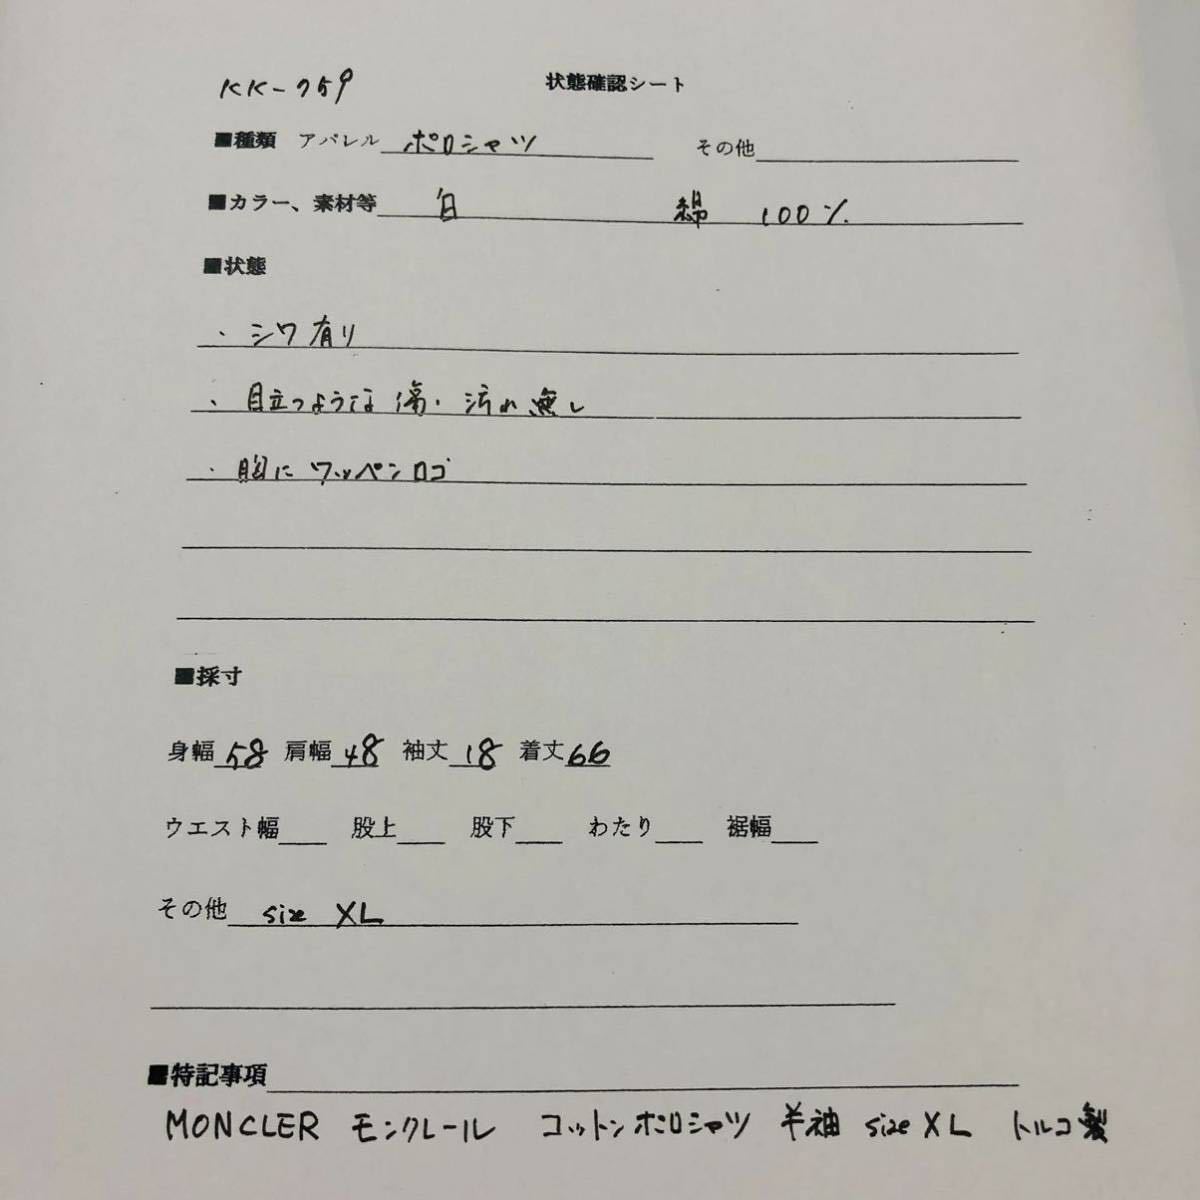 KK-759 状態確認シート
■種類 アパレル ポロシャツ その他
■カラー、素材等 白 綿 100%
■状態
・シワ有り
・目立つような傷・汚れ無し
・胸にワッペンロゴ
■採寸
身幅 58 肩幅 48 袖丈 18 着丈 66
ウエスト幅 股上 股下 わたり 裾幅
その他 size XL
■特記事項
MONCLER モンクレール コットンポロシャツ 半袖 size XL トルコ製